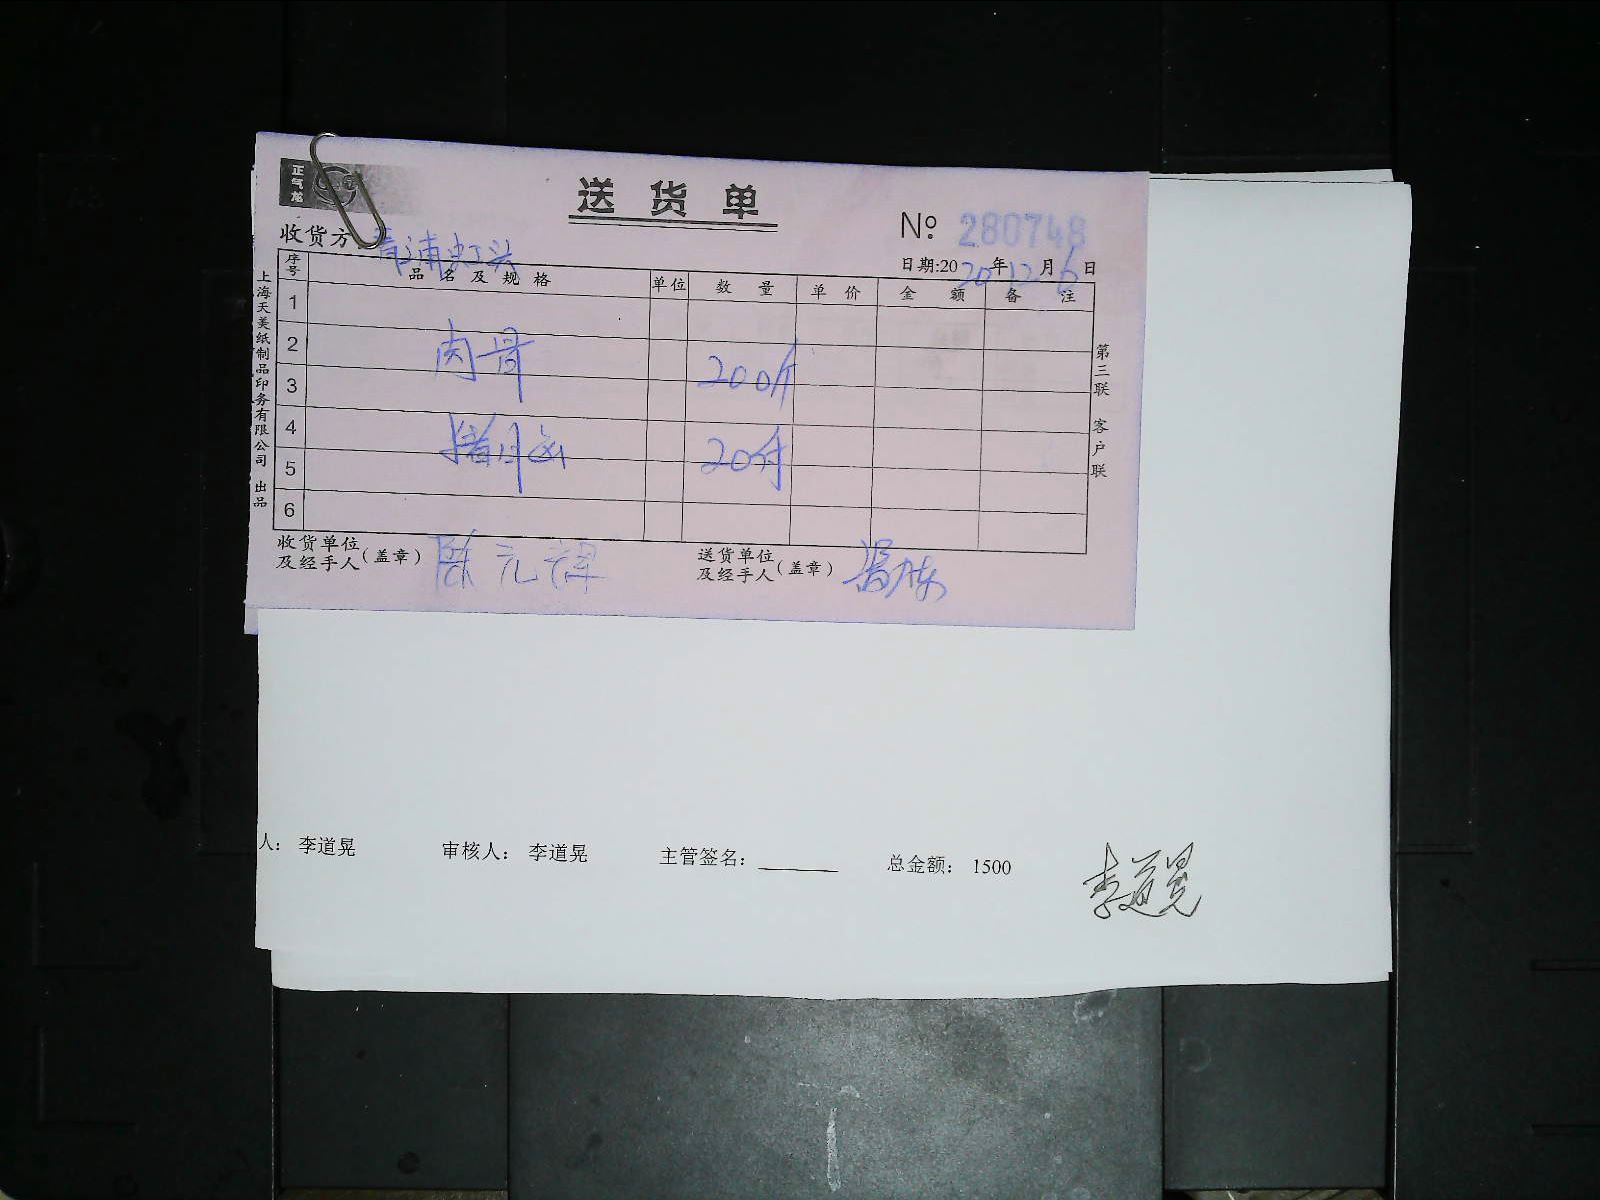 正气龙
送货单
№ 280748
收货方:青浦虹头
日期:2020年12月6日
序号 品名及规格 单位 数量 单价 金额 备注
1
2
肉骨 200斤
3
4
猪月 20付
5
6
收货单位及经手人(盖章) 陈元祥
送货单位及经手人(盖章)
上海天美纸制品印务有限公司 出品
第三联 客户联
人: 李道晃 审核人: 李道晃 主管签名: 总金额: 1500
李道晃